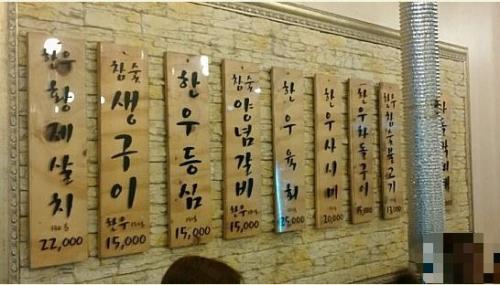 한우
황제살치
22,000
참숯
생구이
한우
15,000
한우등심
15,000
참숯
양념갈비
한우
15,000
한우육회
25,000
한우사시미
20,000
한우차돌구이
15,000
한우
참숯불고기
13,000